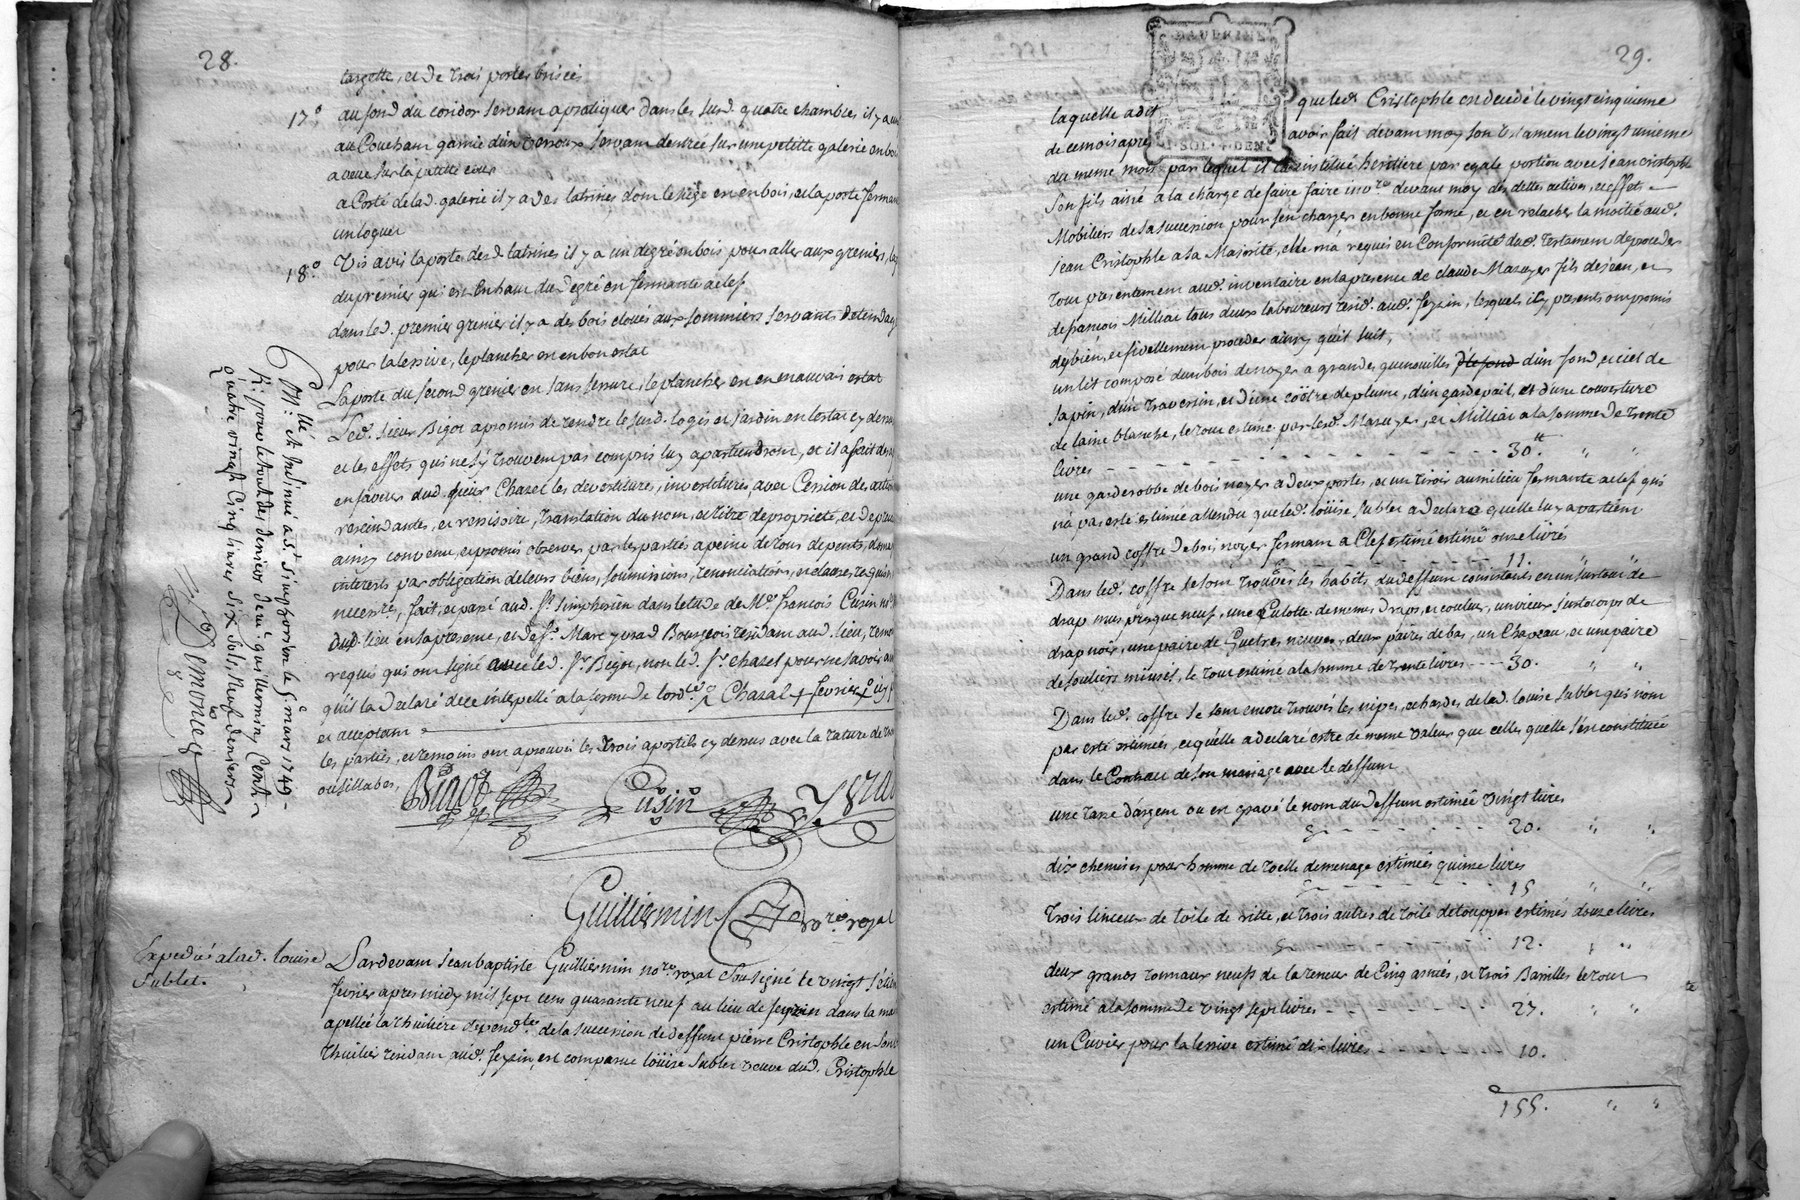 28.
targette, et de trois portes brisées
17° au fond du coridor servant a pratiquer dans les susd. quatre chambres il y a un
au Couchant garnie d'un verroux servant d'entrée sur une petitte galerie en bois
a veue sur la petitte cour
a Costé de lad. galerie il y a des latrines dont le siège en en bois, et la porte fermant
un loquet
18° Vis a vis la porte desd. latrines il y a un degré en bois pour aller aux greniers, la
du premier qui est en haut du degré en fermante a clef
dans led. premier grenier il y a des bois cloués aux sommiers servants d'etendage
pour la lessive, le plancher en en bon estat
La porte du second grenier en sans serrure, le plancher en en mauvais estat
Led. sieur Bigot a promis de rendre le susd. logis et jardin en l'estat cy dessus
et les effets qui ne s'y trouvent pas compris luy apartiendront, et il a fait
en faveur dud. sieur Chazel les devestitures, investitures, avec Cession des actions
rescindantes, et rescisoire, translation du nom, et titre de proprieté, et de
ainsy convenu, et promis observer par les parties a peine de tous depents, domages
interests par obligation de leurs biens, soumissions, renonciations, et clauses requises
necessres, fait, et passé aud. St. Simphorien dans l'etude de Me. françois Cusin nre
dud. lieu en sa presence, et de sr. Marc yvrad Bourgeois residant aud. lieu, temoins
requis qui ont signé avec led. Sr. Bigot, non led. Sr. chazel pour ne savoir
qu'il a declaré de ce interpellé a la forme de l'ordce Chazal + fevrier
et acceptant
les parties, et temoins ont aprouvé les trois apostils cy dessus avec la rature de trois
ou sillabes,
Bigot Cusin Yvrad
Guilliermin no.re royal
N: llé et Insinué a St Simphorien le 6e mars 1749
R: pour le tout des deniers du Sr: guilliermin, Cent
quatre vingt Cinq livres six sols, neuf deniers
Demoncey
Expedié a lad. louise
Sublet.
Pardevant jean baptiste Guilliermin nore royal soussigné le vingt
fevrier apres midy mil sept cens quarante neuf au lieu de feyzin dans la
apellée la thuiliere dependte de la succession de deffunt pierre Cristophle en
thuilier residant aud. feyzin, est comparue loüise Sublet veuve dud. Cristophle
29.
DAUPHINÉ
SOL. DEN.
laquelle a dit que led. Cristophle en decedé le vingt cinquieme
de ce mois apres avoir fait devant moy son testament le vingt unieme
du meme mois par lequel il l'a instituée heritiere par egale portion avec jean cristophle
son fils ainé a la charge de faire faire invre devant moy des dettes actives, et effets
Mobiliers de sa succession pour s'en charger en bonne forme, et en relacher la moitié aud.
jean Cristophle a sa Majorité, elle m'a requis en Conformité dud. testament de proceder
tout presentement aud. inventaire en la presence de claude Mazuyer fils de jean, et
de françois Milliat tous deux laboureurs resid. aud. feyzin, lesquels icy presents ont promis
de bien, et fidellement proceder ainsy qu'il suit,
un lit composé d'un bois de noyer a grandes quenouilles d'le fond d'un fond, et ciel de
sapin, d'un traversin, et d'une coëtre de plume, d'un gardepail, et d'une couverture
de laine blanche, le tout estimé par lesd. Mazuyer, et Milliat a la somme de trente
livres 30tt " "
une garderobbe de bois noyer a deux portes, et un tiroir au milieu fermante a clef qui
n'a pas esté estimée attendu que led. loüise Sublet a declaré quelle luy apartient
un grand coffre de bois noyer fermant a Clef estimé estimé onze livres
11. " "
Dans led. coffre se sont trouvés les habits du deffunt consistants en un surtout de
drap mur presque neuf, une Culotte de memes draps, et couleur, un vieux justocorps de
drap noir, une paire de Guetres neuves, deux paires de bas, un Chapeau, et une paire
de souliers miusés, le tout estimé a la somme de trente livres 30. " "
Dans led. coffre se sont encore trouvés les nipes, et hardes de lad. louise Sublet qui n'ont
pas esté estimées, et qu'elle a declaré estre de meme valeur que celles quelle s'en constituée
dans le Contract de son mariage avec le deffunt
une tasse d'argent ou en gravé le nom du deffunt estimée vingt livres
20. " "
dix chemises pour homme de toille de menage estimées quinze livres
15 " "
Trois linceux de toile de ritte, et trois autres de toile d'etouppes estimés douze livres
12. " "
deux grands tonnaux neufs de la teneur de Cinq asnées, et trois Barilles le tout
estimé a la somme de vingt sept livres 27. " "
un Cuvier pour la lessive estimé dix livres 10.
155. " "